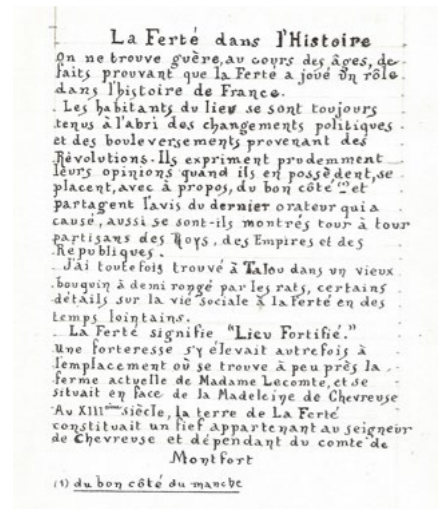 La Ferté dans l'Histoire
On ne trouve guère, au cours des âges, de
faits prouvant que la Ferté a joué un rôle
dans l'histoire de France.
Les habitants du lieu se sont toujours
tenus à l'abri des changements politiques
et des bouleversements provenant des
Révolutions. Ils expriment prudemment
leurs opinions quand ils en possèdent, se
placent, avec à propos, du bon côté (1) et
partagent l'avis du dernier orateur qui a
causé, aussi se sont-ils montrés tour à tour
partisans des Roys, des Empires et des
Républiques.
J'ai toutefois trouvé à Talou dans un vieux
bouquin à demi rongé par les rats, certains
détails sur la vie sociale à la Ferté en des
temps lointains.
La Ferté signifie "Lieu Fortifié."
Une forteresse s'y élevait autrefois à
l'emplacement où se trouve à peu près la
ferme actuelle de Madame Lecomte, et se
situait en face de la Madeleine de Chevreuse
Au XIIIème siècle, la terre de La Ferté
constituait un fief appartenant au seigneur
de Chevreuse et dépendant du comte de
Montfort
(1) du bon côté du manche